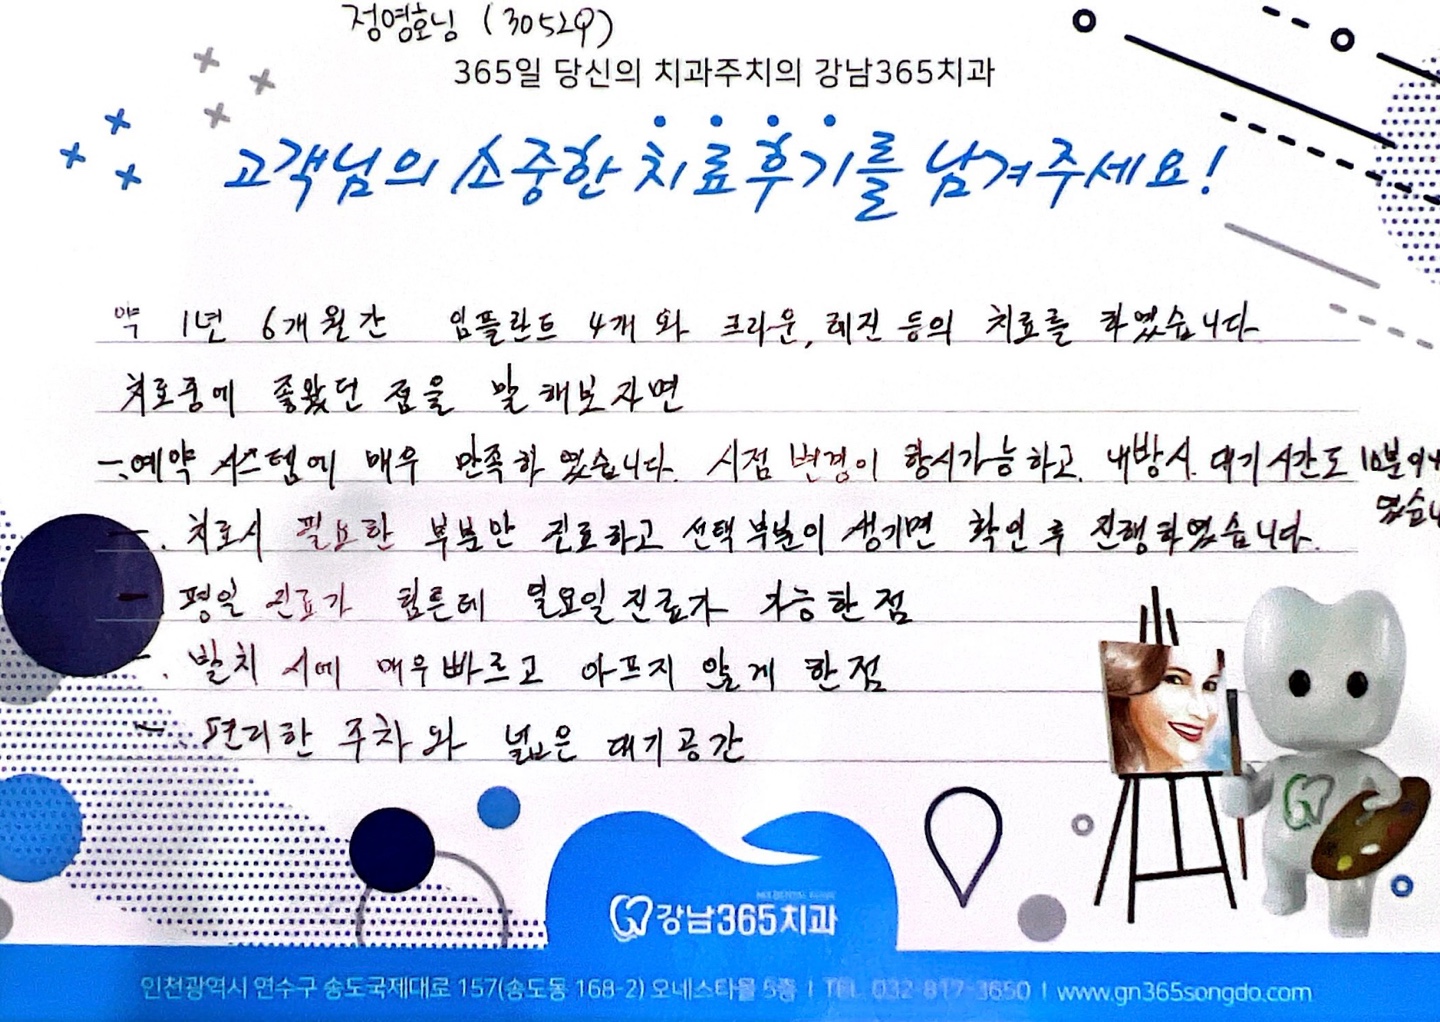 정영호님 (30529)
365일 당신의 치과주치의 강남365치과
고객님의 소중한 치료후기를 남겨주세요!
약 1년 6개월간 임플란트 4개 와 크라운, 레진 등의 치료를 하였습니다
치료중에 좋왔던 점을 말해보자면
- 예약 시스템에 매우 만족하였습니다. 시점 변경이 항시가능하고. 내방시. 대기시간도 10분이내
였습니
- 치료시 필요한 부분만 진료하고 선택부분이 생기면 확인 후 진행하였습니다.
- 평일 진료가 힘든데 일요일 진료가 가능한점
- 발치 시에 매우 빠르고 아프지 않게 한점
- 편리한 주차와 넓은 대기공간
강남365치과
인천광역시 연수구 송도국제대로 157(송도동 168-2) 오네스타몰 5층 | TEL 032-817-3650 | www.gn365songdo.com